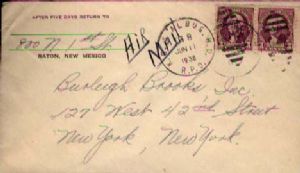 AFTER FIVE DAYS RETURN TO
800 N 1st St.
RATON, NEW MEXICO
Air Mail
JUN 11
1936
R.P.O.
Burleigh Brooks Inc.
127 West 42nd Street
New York, New York.